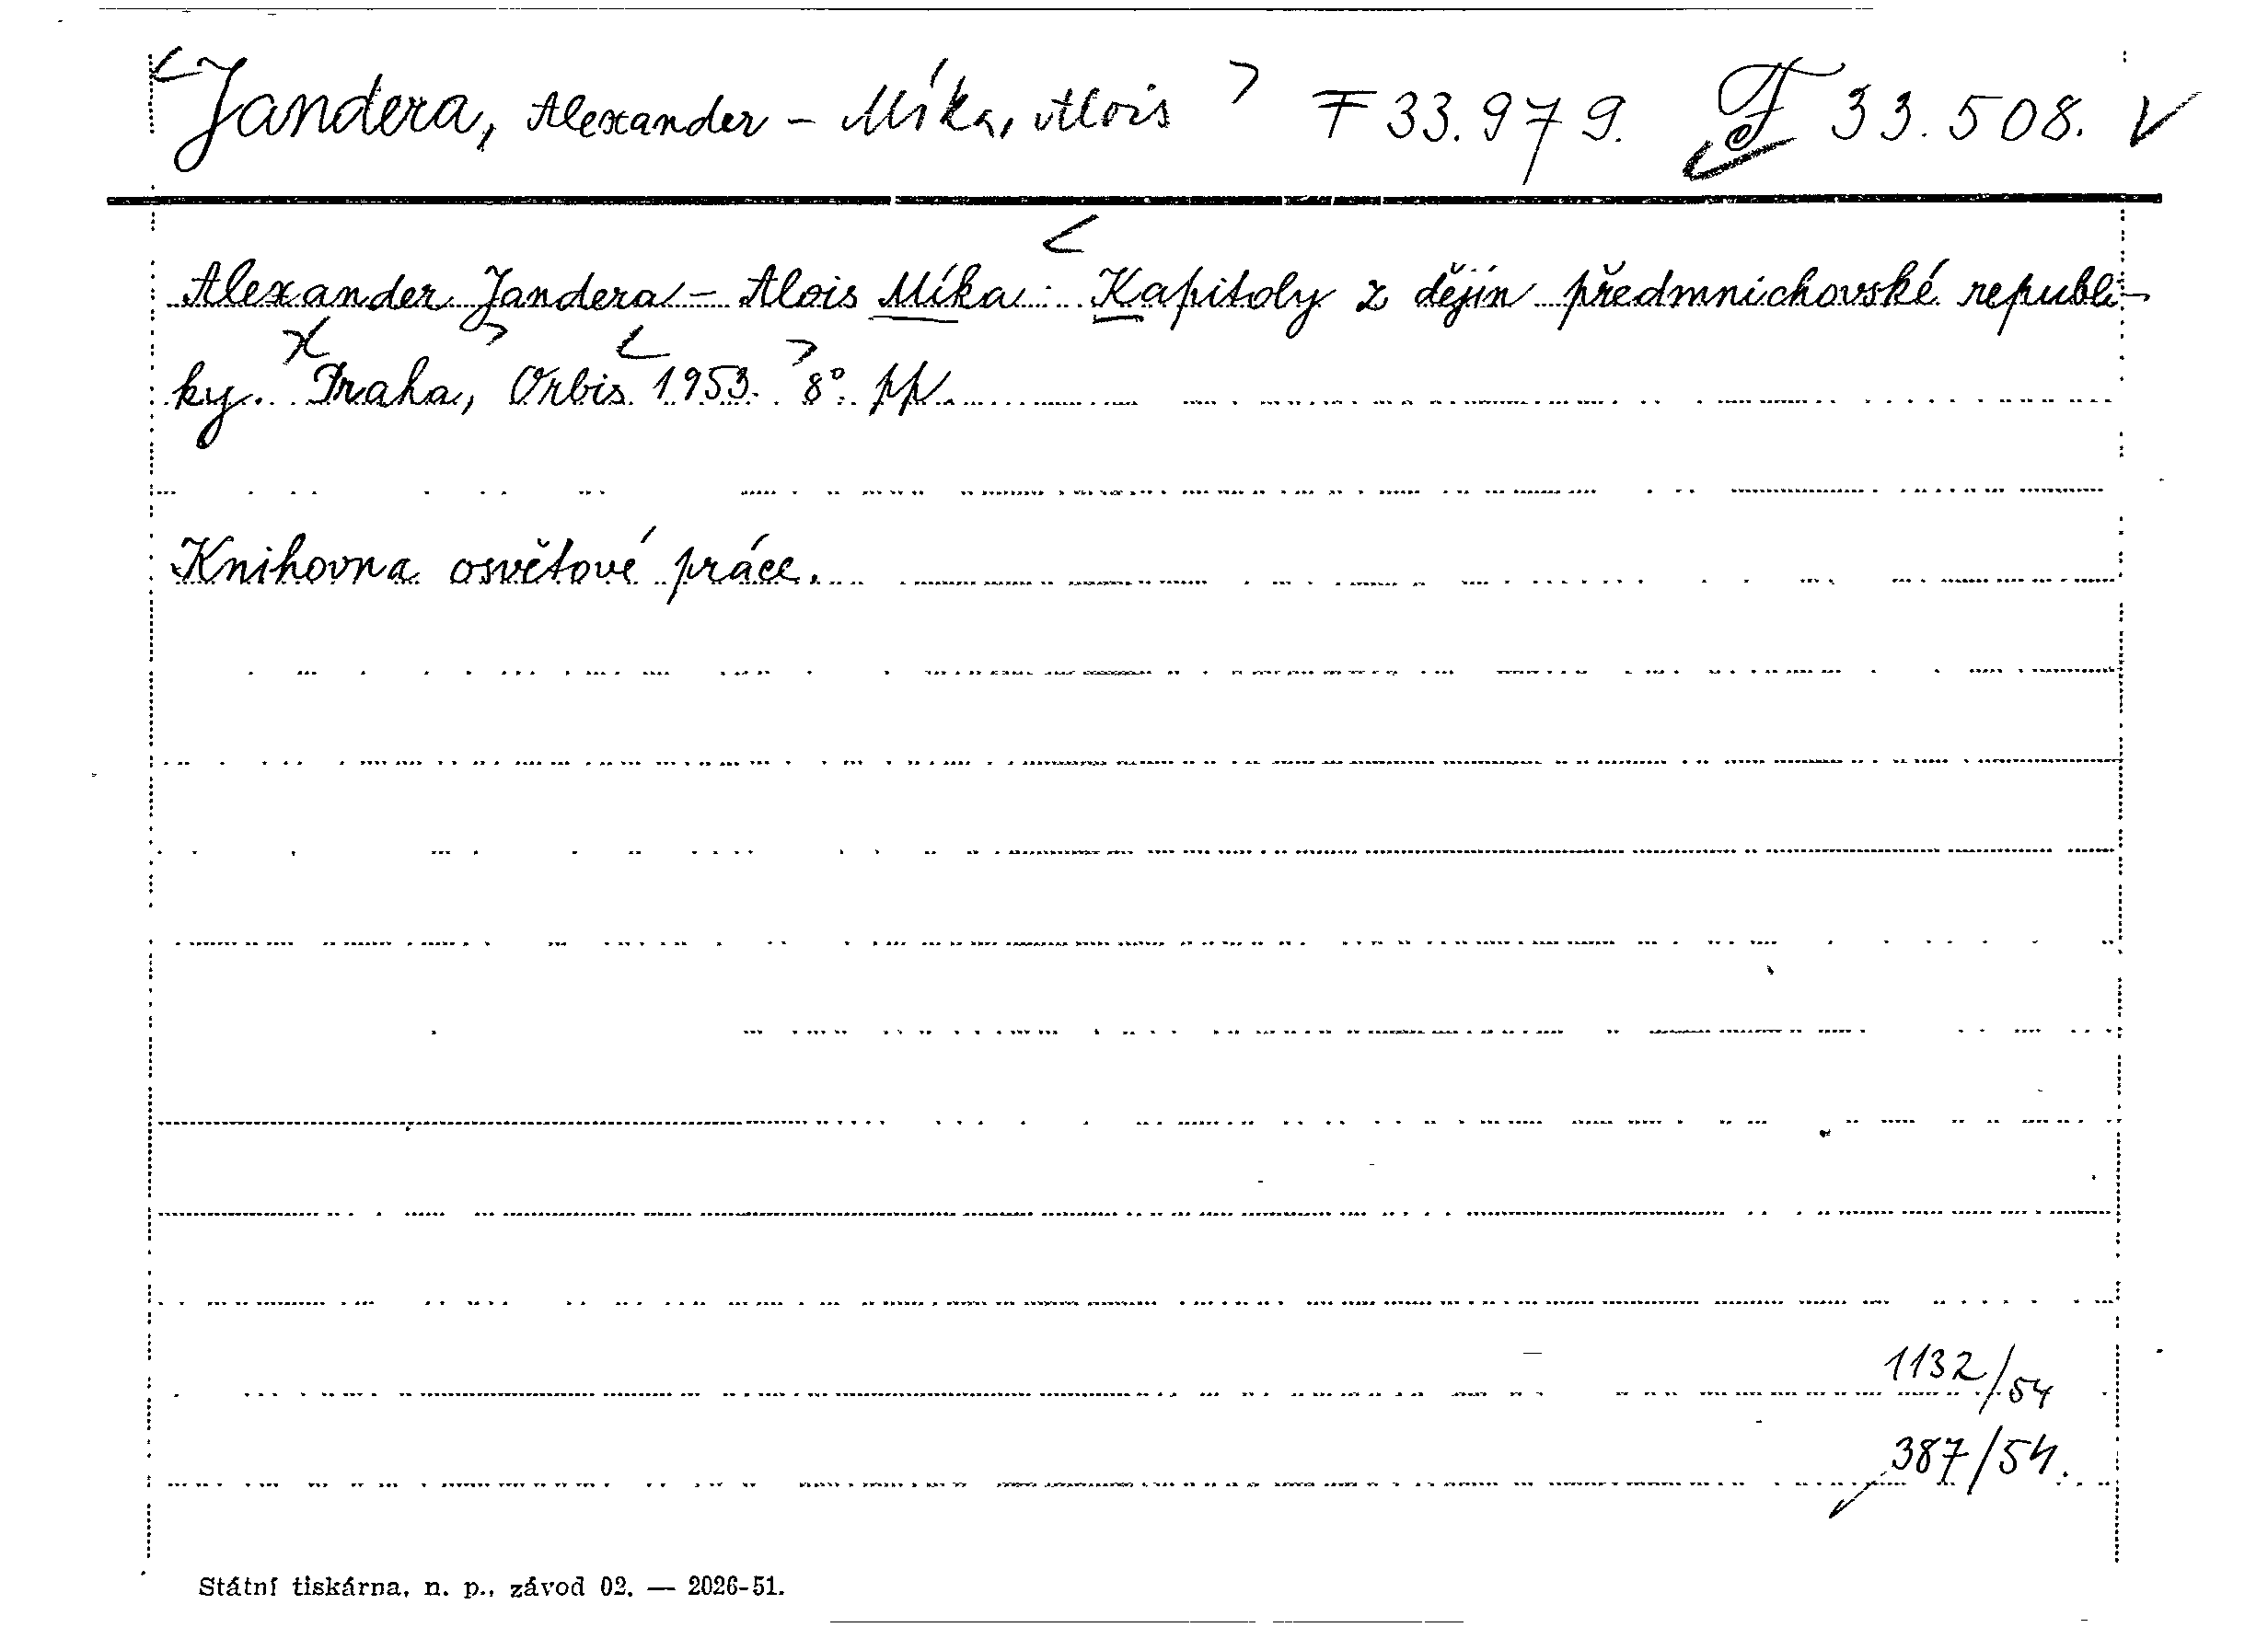 Jandera, Alexander - Míka, Alois F 33.979. F 33.508.
Alexander Jandera - Alois Míka: Kapitoly z dějin předmnichovské republi-
ky. Praha, Orbis 1953. 8°. pp.
Knihovna osvětové práce.
1132/54
387/54.
Státní tiskárna, n. p., závod 02. — 2026-51.